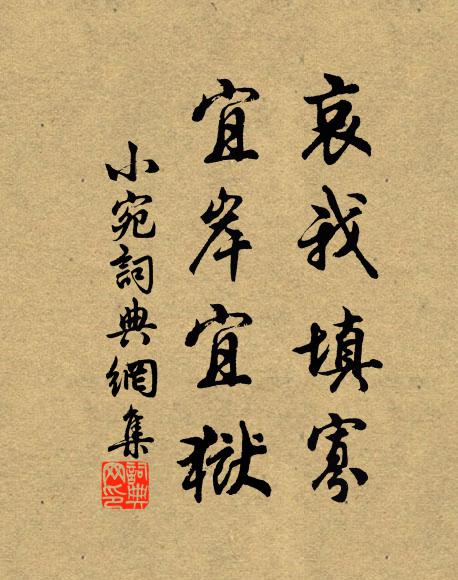 哀我填寡
宜岸宜獄
小宛詞典網集
詞典网印